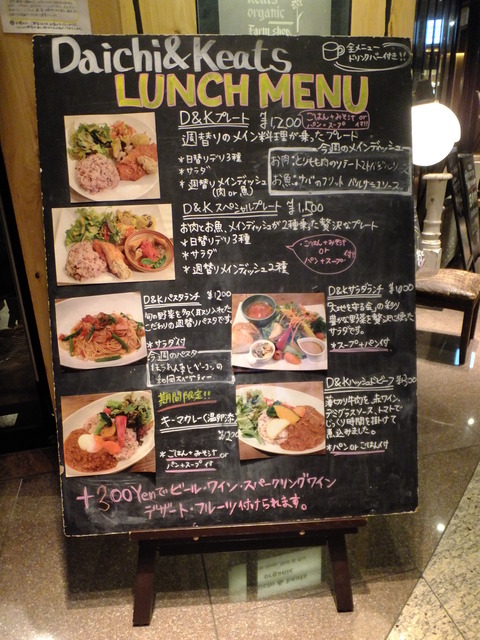 Keats
organic
Farm shop
Daichi&Keats
LUNCH MENU
全メニュー
ドリンクバー付き!!
D&Kプレート ¥1200
ごはん+みそ汁 or
パン+スープ 付!!
週替りのメイン料理が乗ったプレート
今週のメインディッシュ
*日替りデリ3種
*サラダ
*週替りメインディッシュ
(肉 or 魚)
お肉:とりもも肉のソテー
お魚:サバのフリット バルサミコソース
D&K スペシャルプレート
お肉とお魚、メインディッシュが2種乗った贅沢なプレート
*日替りデリ3種
*サラダ
*週替りメインディッシュ2種
ごはん+みそ汁
or
パン+スープ
付!
D&Kパスタランチ ¥1200
旬の野菜を多く取り入れた
こだわりの週替りパスタです。
*サラダ付
今週のパスタ
ほうれん草とベーコンの
和風スパゲティー
D&Kサラダランチ
"大地を守る会"の彩り
豊かな野菜を贅沢に使った
サラダです。
*スープ+パン付
期間限定!!
キーマカレー
*ごはん+みそ汁 or
パン+スープ 付
D&Kハッシュドビーフ
薄切り牛肉を、赤ワイン、
デミグラスソース、トマトで
じっくり時間を掛けて
煮込みました。
*パン or ごはん付
+300Yenでビール・ワイン・スパークリングワイン
デザート・フルーツ付けられます。